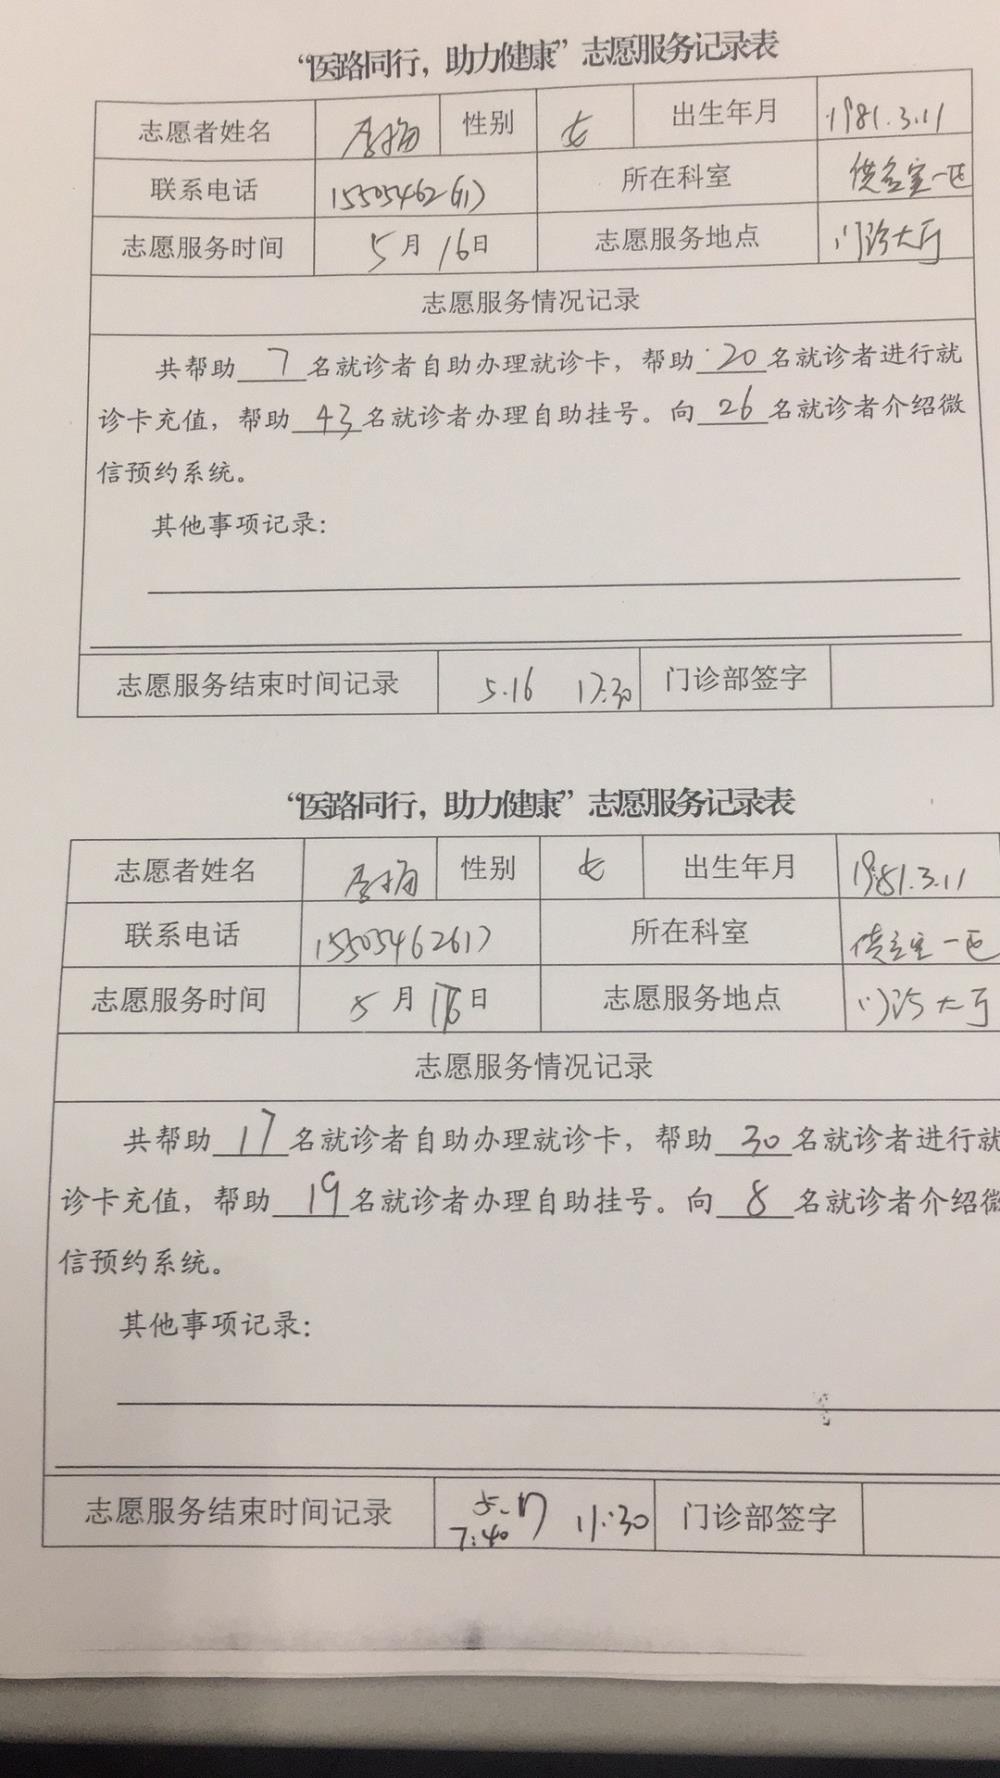 “医路同行，助力健康”志愿服务记录表
志愿者姓名 李梅 性别 女 出生年月 1981.3.11
联系电话 15505462617 所在科室 供应室一区
志愿服务时间 5月16日 志愿服务地点 门诊大厅
志愿服务情况记录
共帮助7名就诊者自助办理就诊卡，帮助20名就诊者进行就
诊卡充值，帮助43名就诊者办理自助挂号。向26名就诊者介绍微
信预约系统。
其他事项记录：
志愿服务结束时间记录 5.16 17:30 门诊部签字
“医路同行，助力健康”志愿服务记录表
志愿者姓名 李梅 性别 女 出生年月 1981.3.11
联系电话 15505462617 所在科室 供应室一区
志愿服务时间 5月日 志愿服务地点 门诊大厅
志愿服务情况记录
共帮助17名就诊者自助办理就诊卡，帮助30名就诊者进行就
诊卡充值，帮助19名就诊者办理自助挂号。向8名就诊者介绍微
信预约系统。
其他事项记录：
志愿服务结束时间记录 5.17 7:40 11:30 门诊部签字